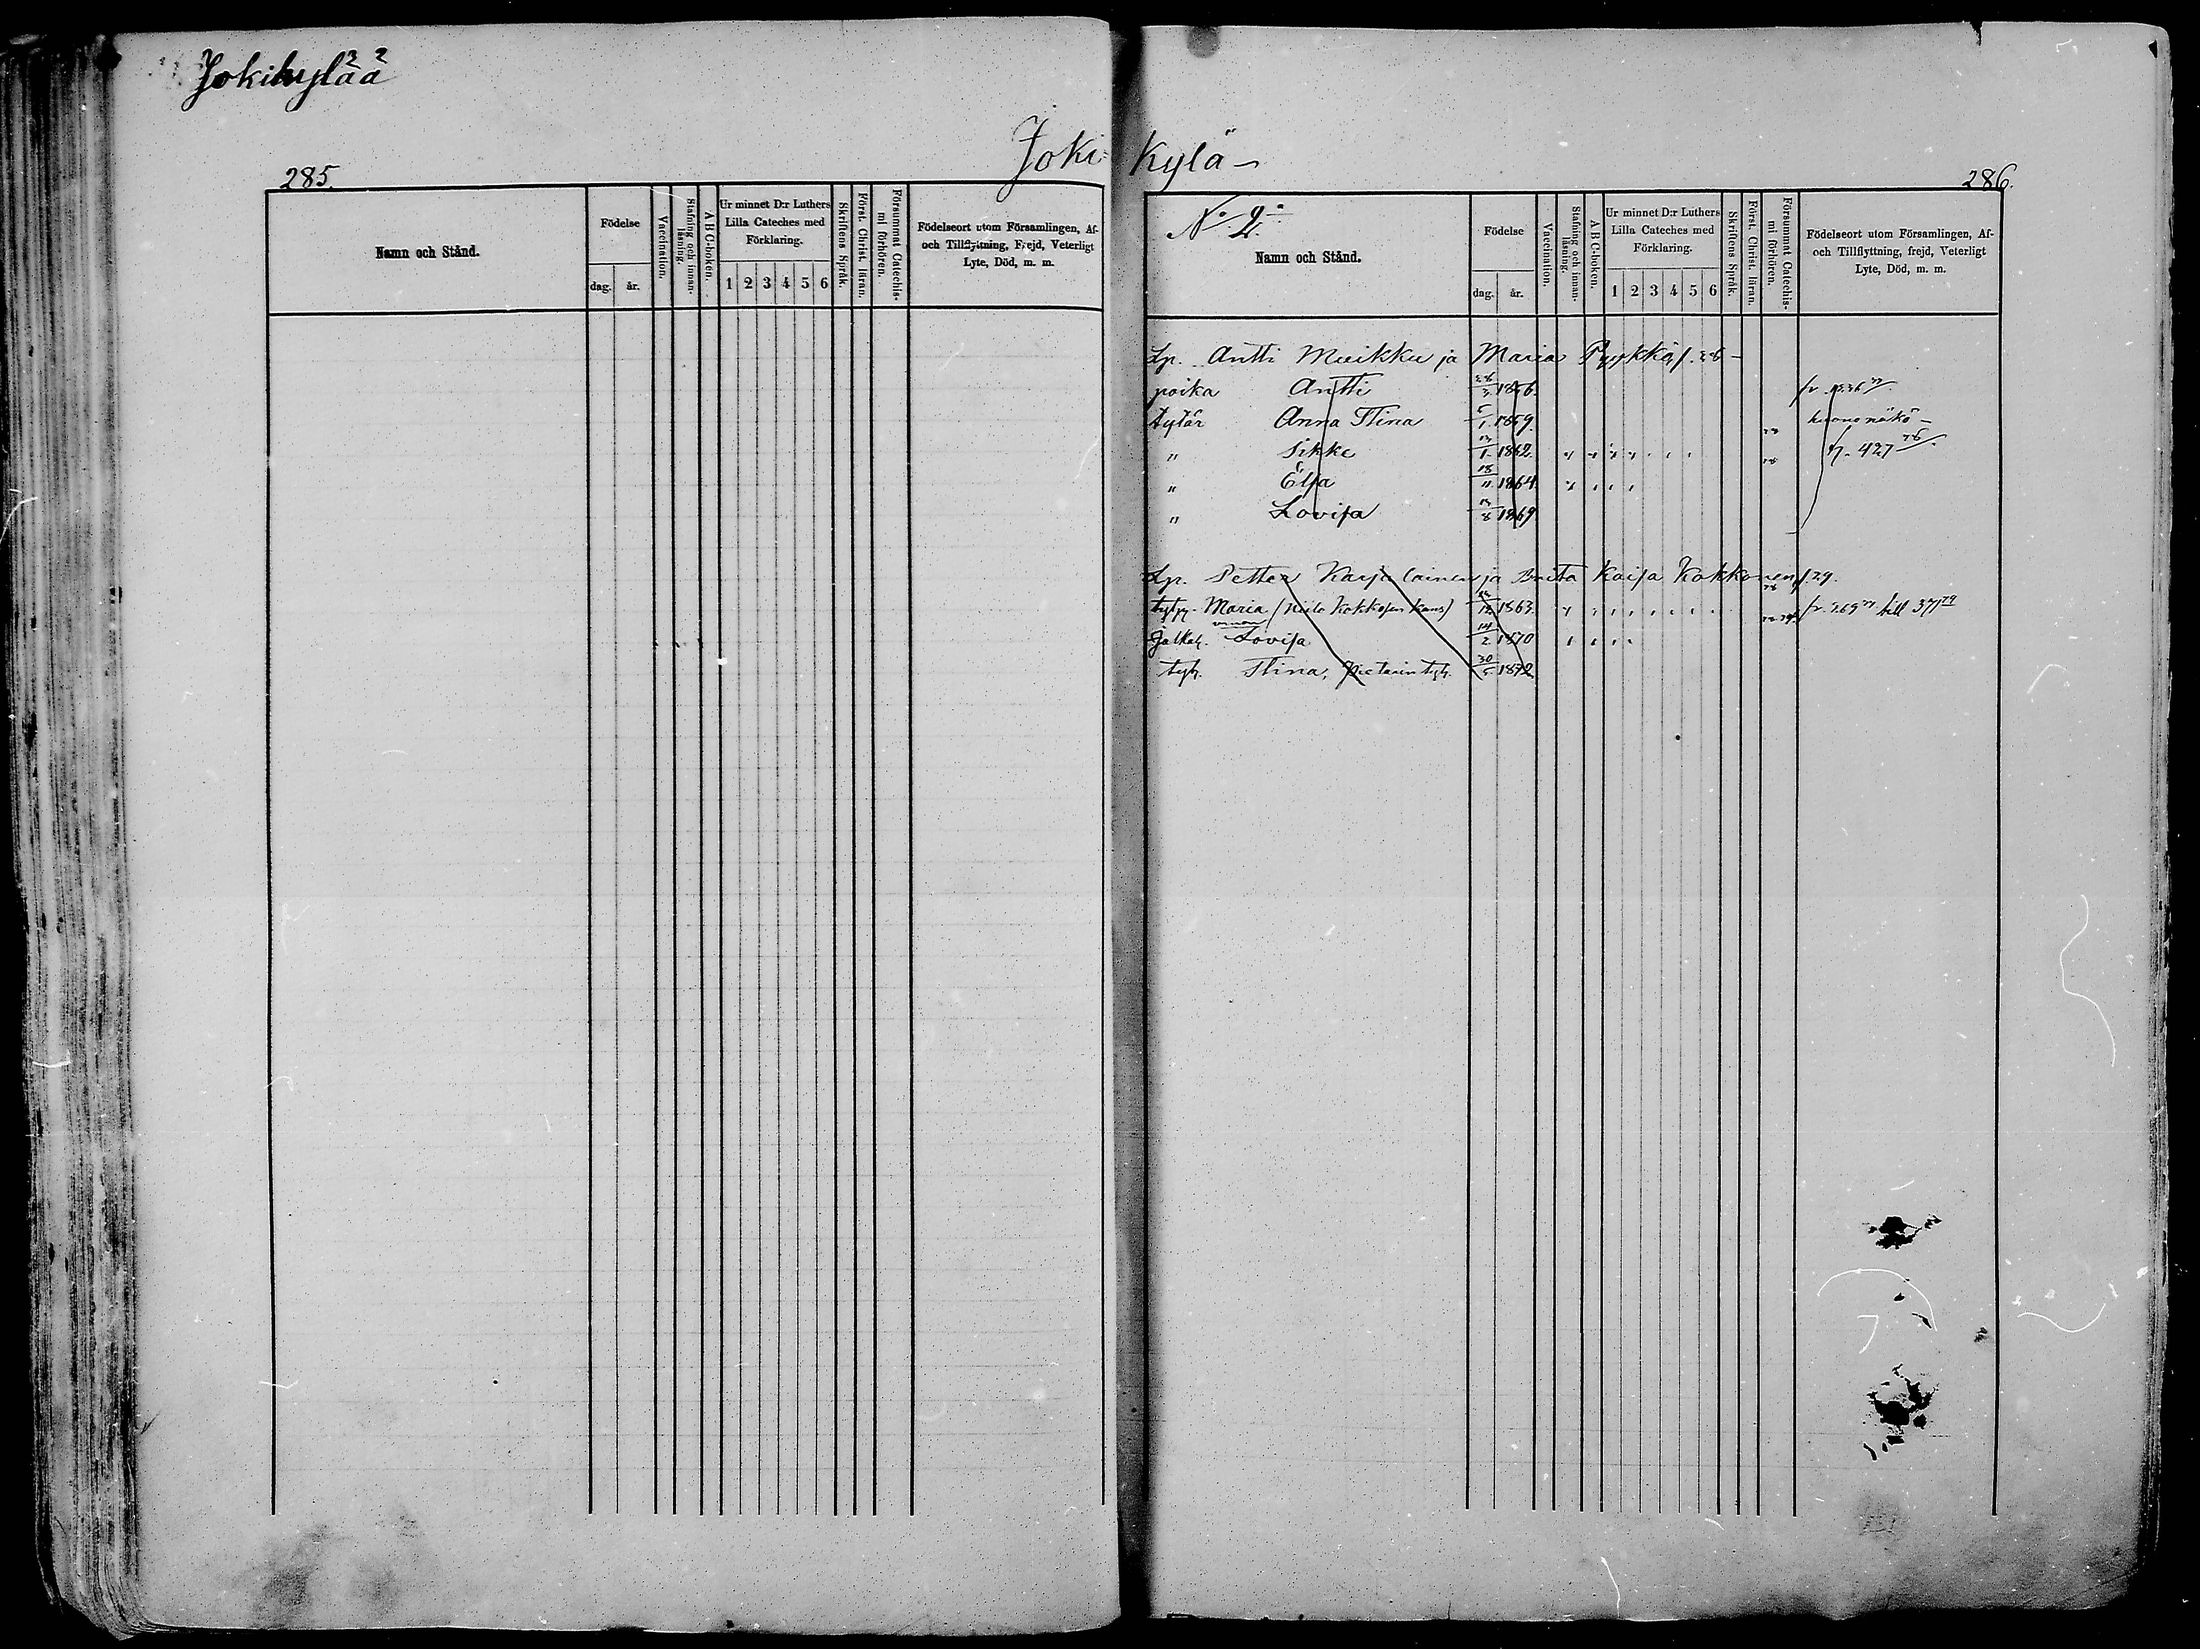 Jokikylää
Joki-
285.
Namn och Stånd.
Födelse
dag.
år.
Vaccination.
Stafning och innan-
läsning.
A B C-boken.
Ur minnet D:r Luthers
Lilla Cateches med
Förklaring.
1 2 3 4 5 6
Skriftens Språk.
Först. Christ. läran.
Försummat Catechis-
mi förhören.
Födelseort utom Församlingen, Af-
och Tillflyttning, Frejd, Veterligt
Lyte, Död, m. m.
kylä
286.
No 2.
Namn och Stånd.
Födelse
dag.
år.
Vaccination.
Stafning och innan-
läsning.
A B C-boken.
Ur minnet D:r Luthers
Lilla Cateches med
Förklaring.
1 2 3 4 5 6
Skriftens Språk.
Först. Christ. läran.
Försummat Catechis-
mi förhören.
Födelseort utom Församlingen, Af-
och Tillflyttning, frejd, Veterligt
Lyte, Död, m. m.
Lp. Antti Muikku ja Maria Pyykkö
poika Antti 1856.
tytär Anna Stina 5/1 1859. huono näkö
" Sikke 1862. 427
" Elsa 18/11 1864.
" Lovisa 1869
Lp. Petter Karjalainen ja Brita Kaisa Kokkonen, s. 29.
Maria (Niilo Kokkosen kans) 1863. fr. 269 till 37
Jalkat. Lovisa 14/2 1870
tytt. Stina, Pietarin tytt. 30/5 1872